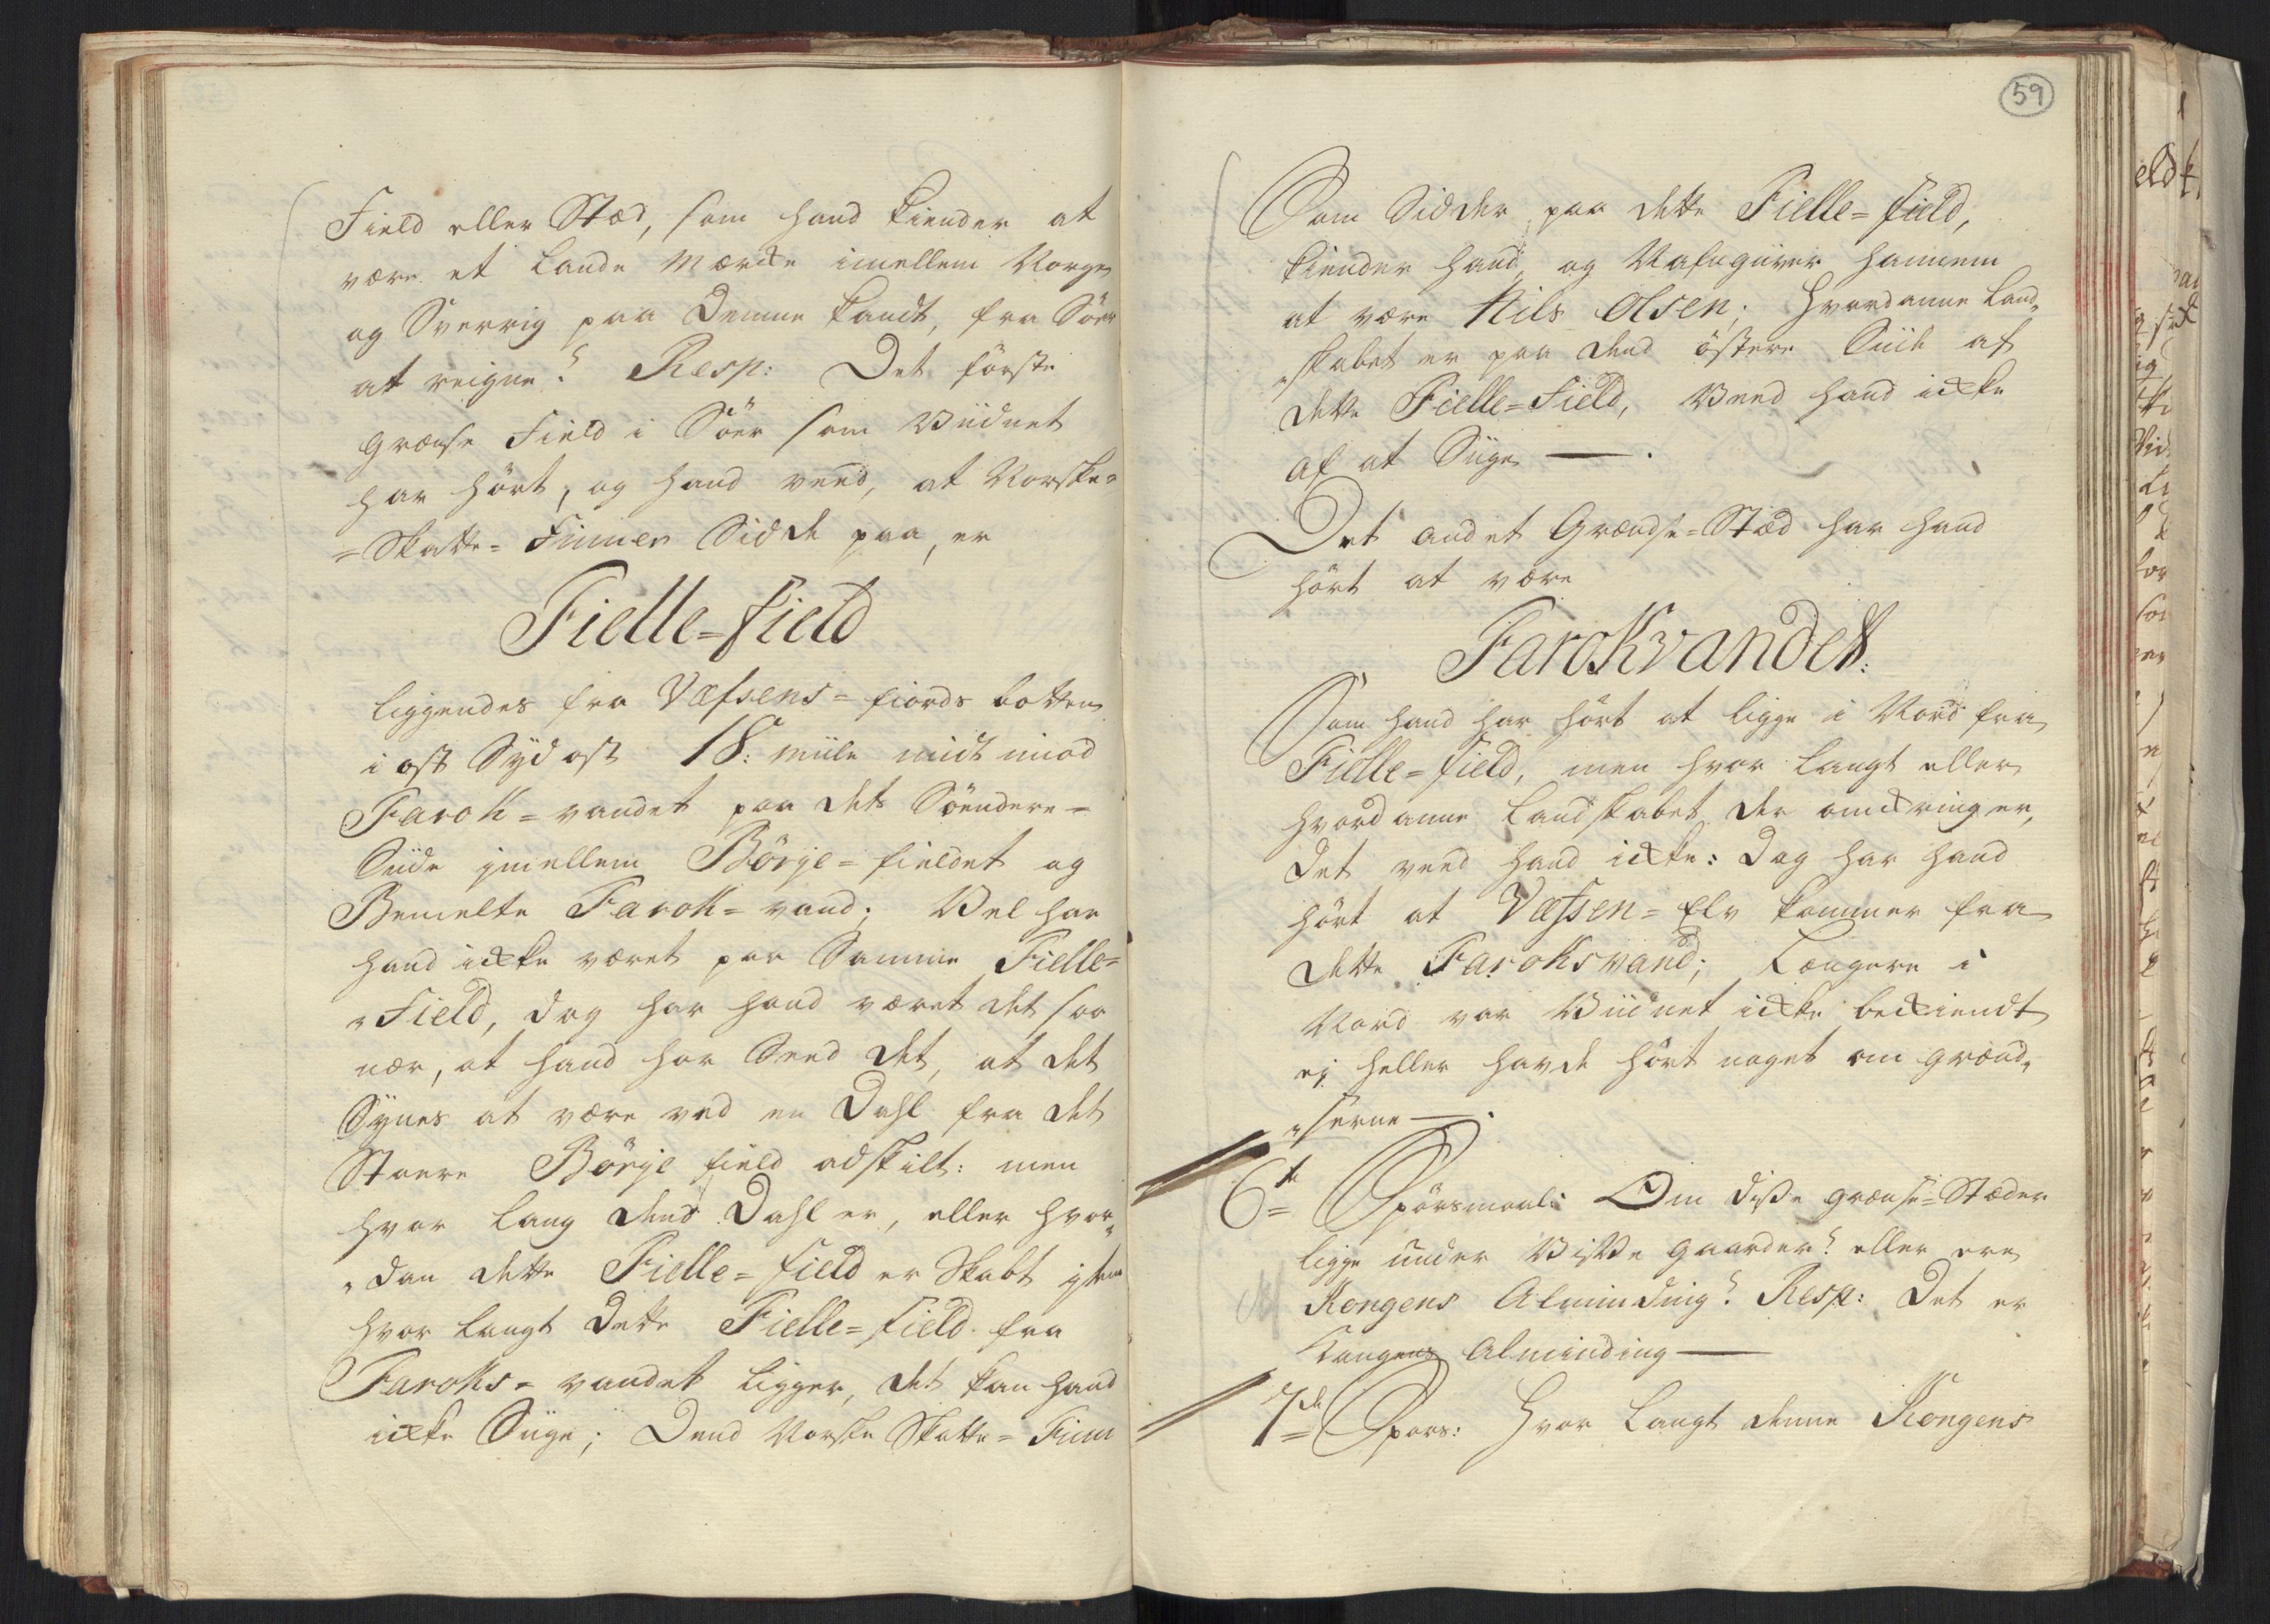 Field eller Stæd, som hand kiender at
være et Lande Mærcke imellem Norge
og Sverrig paa Denne kandt, fra Söer
at reigne? Resp: Det förste
Grænse Field i Söer som Viidnet
har hört, og hand veed, at Norske=
=Skatte= Finner Sidde paa, er
Fielle=field
liggendes fra Væfsens= fiords botten
i ost Sydost 18: miile midt imod
Farok= vandet paa dets Söendere=
Siide imellem Börje= fieldet og
Bemelte Farok= vand; Vel har
hand icke været paa Samme Fielle=
"Field, dog har hand været det saa
nær, at hand har Seed det, at det
Synes at være ved en Dahl fra det
Stoere Börje field adskilt: men
hvor lang dend Dahl er, eller hvor"
"dan dette Fielle= field er Skabt
hvor langt dette Fielle= field fra
Faroks= vandet ligger, det kan hand
icke Siige; Dend Norske Skatte= Finn
59
Som Sidder paa dette Fielle= field,
kiender hand, og Nafngiiver hannem
at være Nils Olsen; hvordanne Land"
"skabet er paa dend östere Siide af
dette Fielle= Field, Veed hand icke
af at Siige —.
Det andet Grændse= Stæd har hand
hört at være
Farokvandet:
Som hand har hört at ligge i Nord fra
Fielle= field, men hvor langt eller
hvordanne Landskabet der omkringer,
det veed hand icke: Dog har hand
hört at Væfsen= Elv kommer fra
dette Faroksvand; Længere i
Nord var Viidnet icke bekiendt
ej heller havde hört noget om grænd"
"serne —.
6te Spörsmaal: Om disse grænse= Stæder
ligge under Visse gaarder? eller ere
Kongens Alminding? Resp: Det er
Kongens Alminding —
7de Spörs: Hvor langt denne Kongens